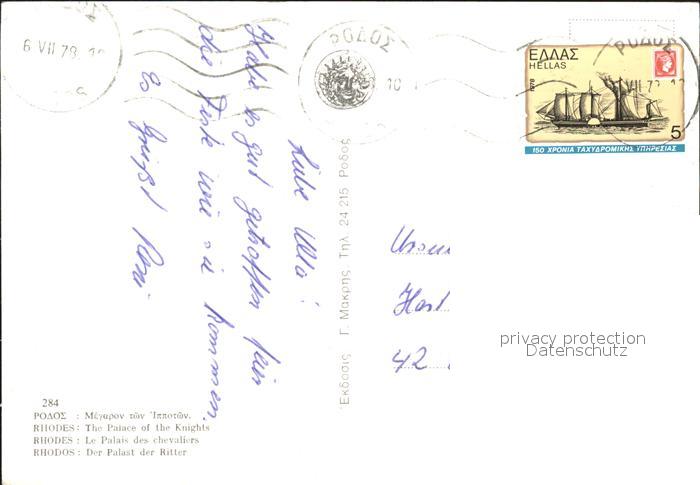 6 VII 78
ΡΟΔΟΣ
ΡΟΔΟΣ
ΕΛΛΑΣ
HELLAS
1978
5
150 ΧΡΟΝΙΑ ΤΑΧΥΔΡΟΜΙΚΗΣ ΥΠΗΡΕΣΙΑΣ
Liebe Ulla!
Habe es gut getroffen
die Leute
kommen.
Es grüßt Rosi
Ἐκδοσις Γ. Μακρης Τηλ. 24 215 Ροδος
42
privacy protection
Datenschutz
284
ΡΟΔΟΣ : Μέγαρον τῶν Ἱπποτῶν.
RHODES : The Palace of the Knights
RHODES : Le Palais des chevaliers
RHODOS : Der Palast der Ritter